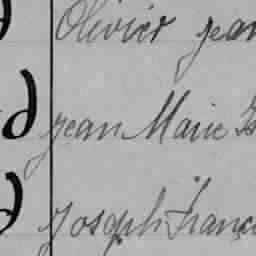 Olivier jean
d jean Marie
Joseph Franc